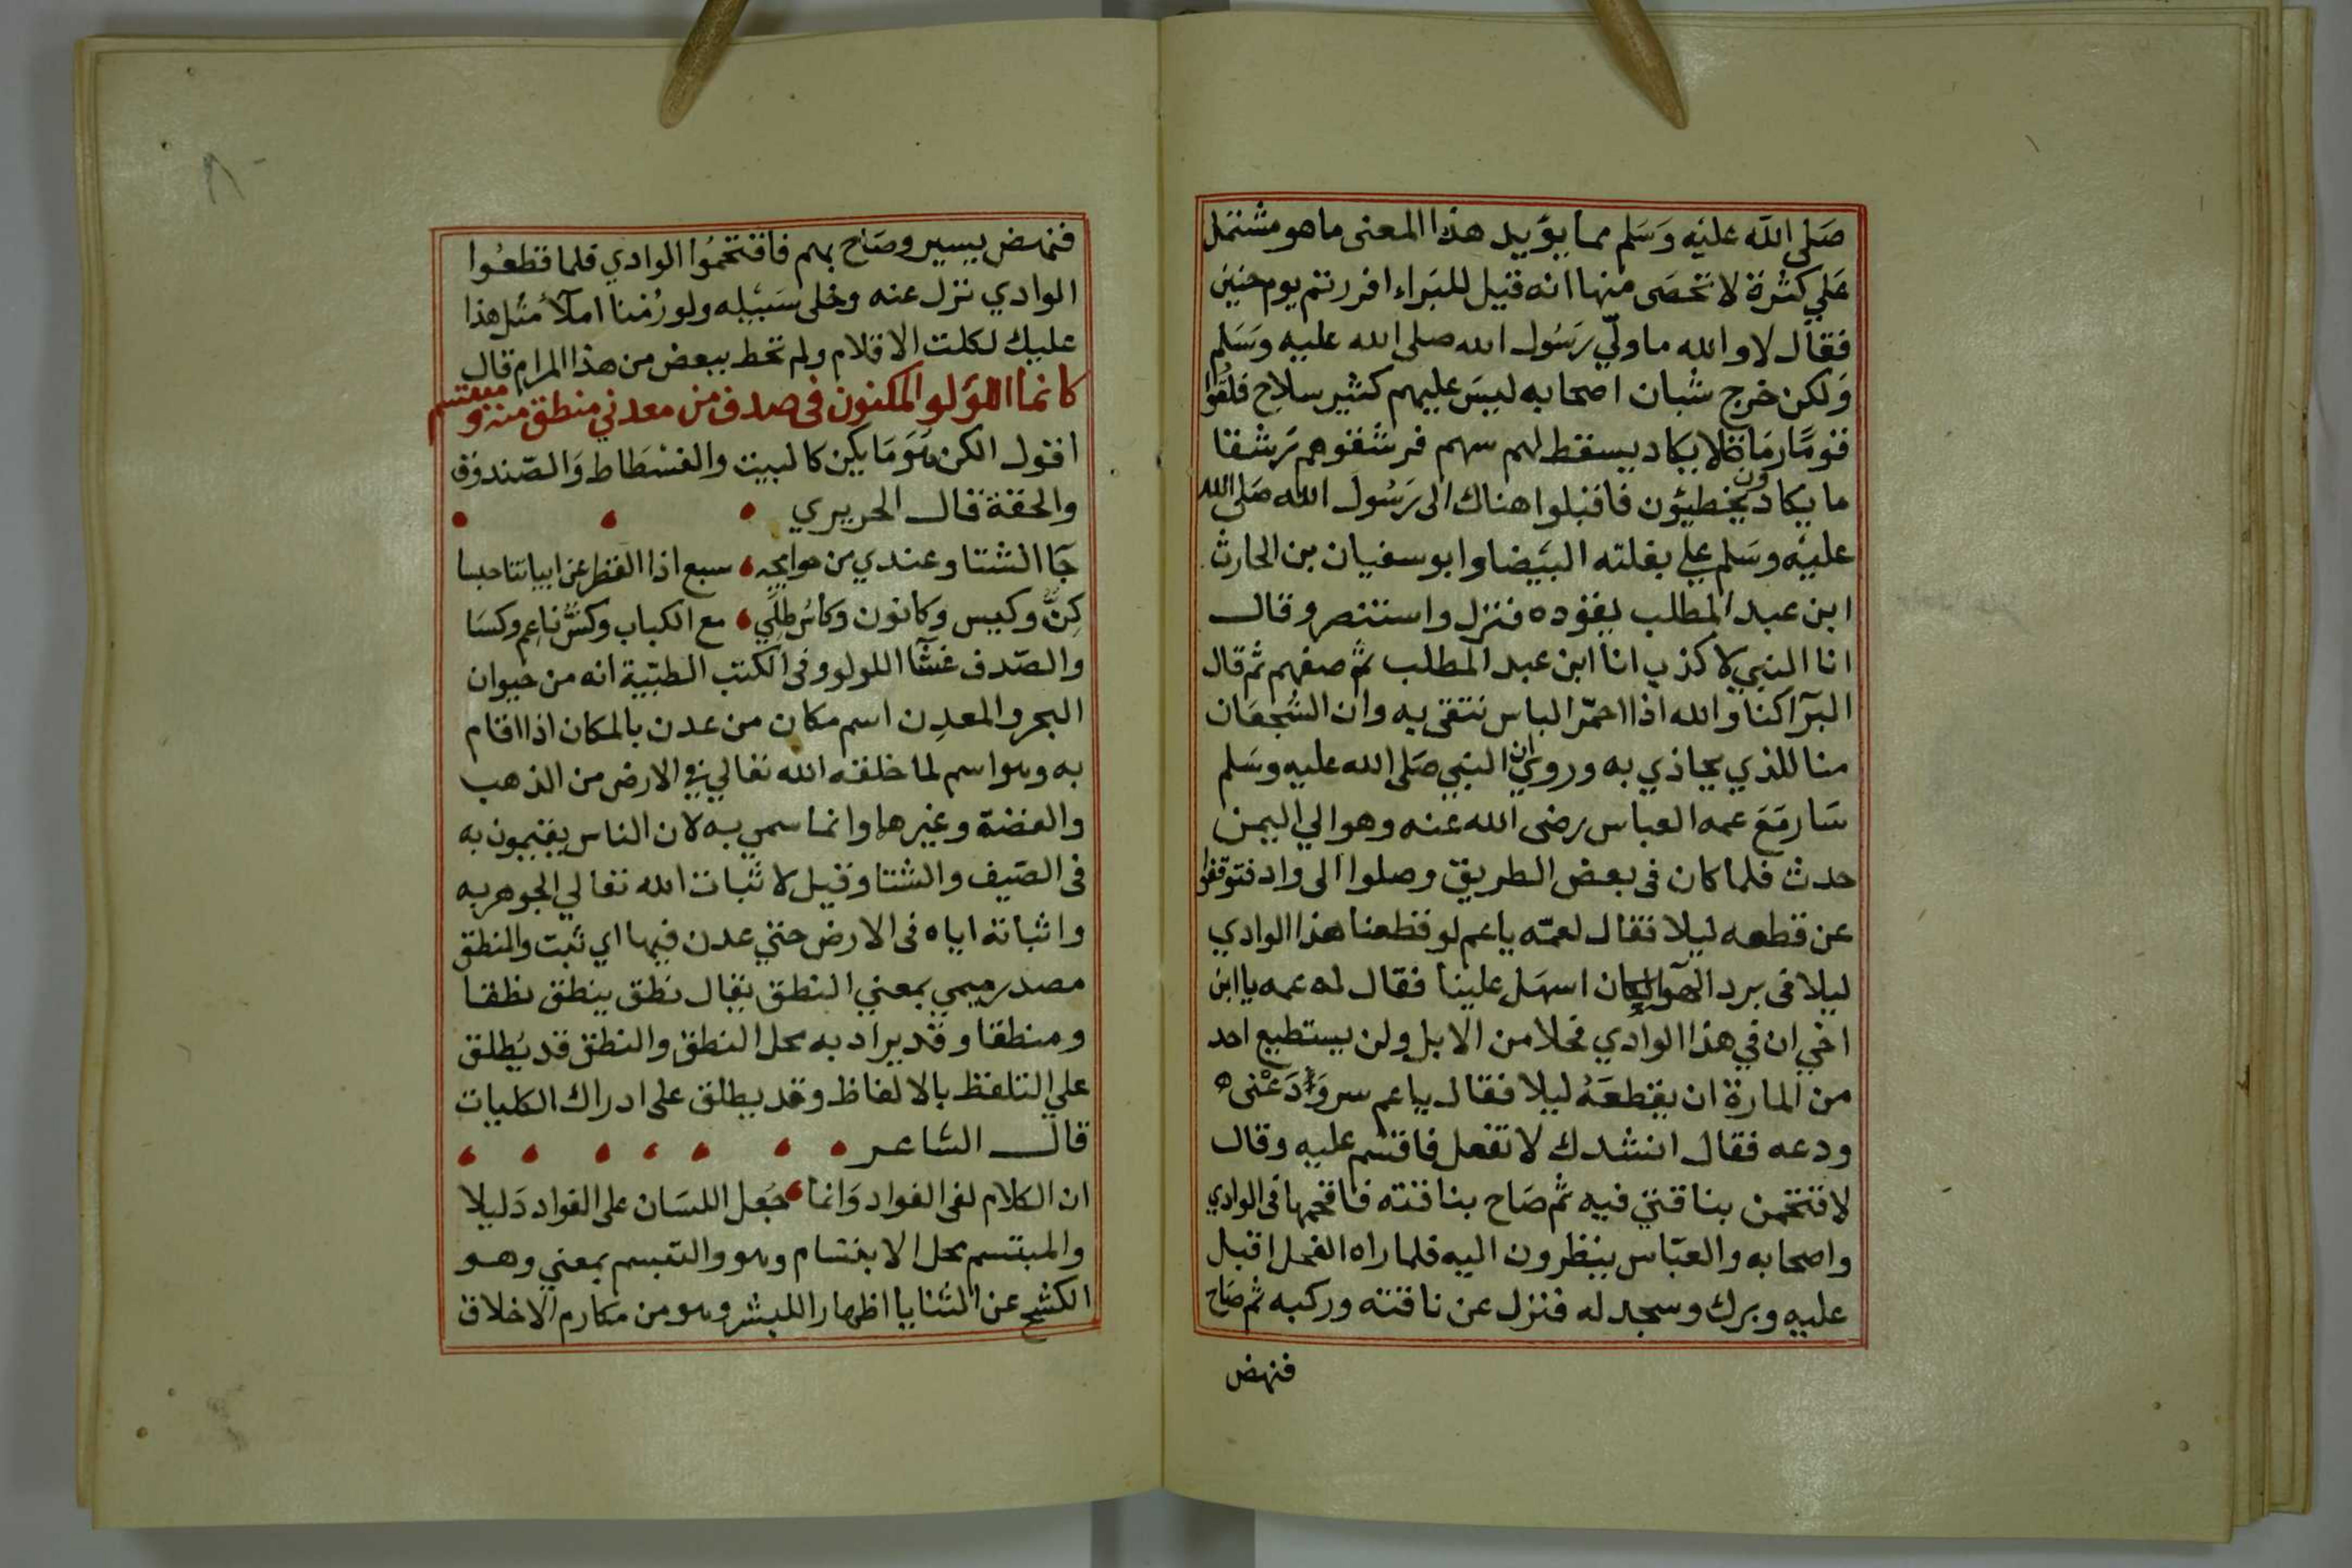 صَلى الله عليْه وَسَلم مما يؤيد هذا المعنى ما هو مشتمل
عَلي كثرة لا تحصَى منها انه قيل للبَراء افررتم يوم حنين
فقال لا والله ما ولّي رَسُول الله صلى الله عليه وَسَلم
وَلكن خرج شبان اصحابه ليسَ عليهم كثير سلاح فلقُوا
قومًا رمَاة لا يكاد يسقط لهم سهم فرشقوهم رَشقا
ما يكادون يخطيؤن فاقبلوا هناك الى رَسُول الله صَلى الله
عليْه وسَلم علي بغلته البيَضا وابو سفيان بن الحارث
ابن عبد المطلب يقوده فنزل واستنصر وقال
انا النبي لا كذب انا ابن عبد المطلب ثم صفهم ثم قال
البرآ كنا والله اذا احمّر الباس نتقى به وان الشجعَان
منا للذي يحاذي به وروي ان النبي صَلى الله عليه وسَلم
سَار مَعَ عمه العباس رضى الله عنه وهو الي اليمن
حدث فلما كان فى بعض الطريق وصلوا الى واد فتوقفوا
عن قطعه ليلا فقال لعمّه ياعم لو قطعنا هذا الوادي
ليلا فى برد الهوآ لكان اسهَل علينا فقال له عمه يا ابن
اخي ان في هذا الوادي فحلا من الابل ولن يستطيع احد
من المارة ان يقطعَهُ ليلا فقال ياعم سر وَدَعْنى
ودعه فقال انشدك لا تفعل فاقسم عليه وقال
لاقتحمن بناقتي فيه ثم صَاح بناقته فاقحمها فى الوادي
واصحابه والعبّاس ينظرون اليه فلما راه الفحل اقبل
عليه وبرك وسجد له فنزل عن ناقته وركبه ثم صَاح
فنهض
فنهض يسير وصَاح بهم فاقتحمُوا الوادي فلما قطعُوا
الوادي نزل عنه وخلى سَبيْله ولو رُمنا املآ مثل هذا
عليك لكلت الاقلام ولم تحط ببعض من هذا المرام قال
كانما اللؤلو المكنون فى صدف من معدني منطق منه ومبتسم
اقول الكن هَوَ مَا يكن كالبيت والفسْطَاط وَالصّندوق
والحقة قال الحريري
جَآ الشتا وعندي من حوايجه سبع اذا القطر عن ابياتنا حبسا
كِنّ وكيس وكانون وكاسُ طِلَي مع الكباب وكسّ ناعم وكسَا
والصّدف غشآ اللولو وفى الكتب الطبّية انه من حيوان
البحر والمعدِن اسم مكان من عدن بالمكان اذا اقام
به وهو اسم لما خلقه الله تعالي في الارض من الذهب
والفضة وغيرها وانما سمي به لان الناس يقيمون به
فى الصّيف والشتا وقيل لاثبات الله تعالي الجوهر به
واثباته اياه فى الارض حتي عدن فيها اي ثبت والمنطق
مصدر ميمي بمعني النطق يقال نطق ينطق نطقا
ومنطقا وقد يراد به محل النطق والنطق قد يُطلق
علي التلفظ بالالفاظ وقد يطلق على ادراك الكليات
قال الشاعر
ان الكلام لفى الفواد وَانما جُعل اللسَان على الفواد دَليلا
والمبتسم محل الابتسام وهو والتبسم بمعني وهو
الكشح عن الثنايا اظهارا للبشر وهو من مكارم الاخلاق